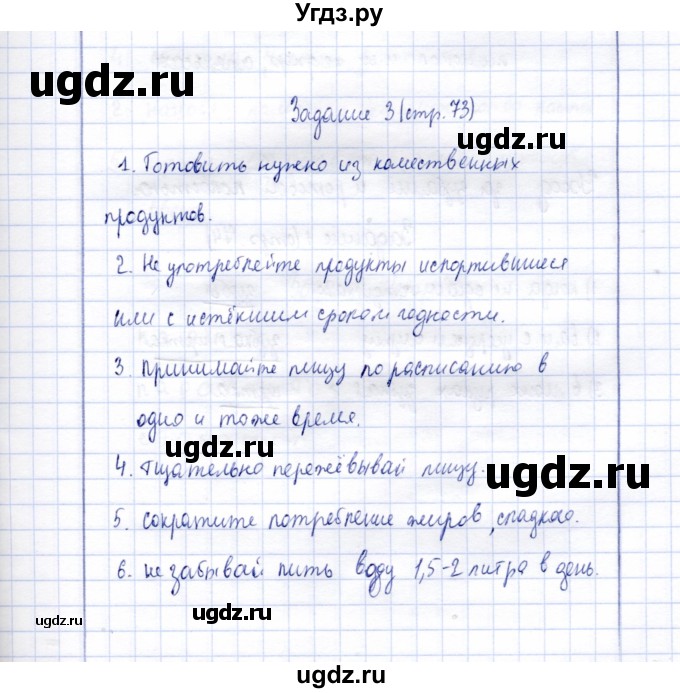 Угдз.ру
ugdz.ru
Задание 3 (стр. 73)
ugdz.ru
1. Готовить нужно из качественных
продуктов.
ugdz.ru
2. Не употребляйте продукты испортившиеся
или с истёкшим сроком годности.
ugdz.ru
3. принимайте пищу по расписанию в
одно и тоже время.
ugdz.ru
4. тщательно пережёвывай пищу.
ugdz.ru
5. сократите потребление жиров, сладкого.
6. не забывай пить воду 1,5-2 литра в день.
ugdz.ru
ugdz.ru
ugdz.ru
ugdz.ru